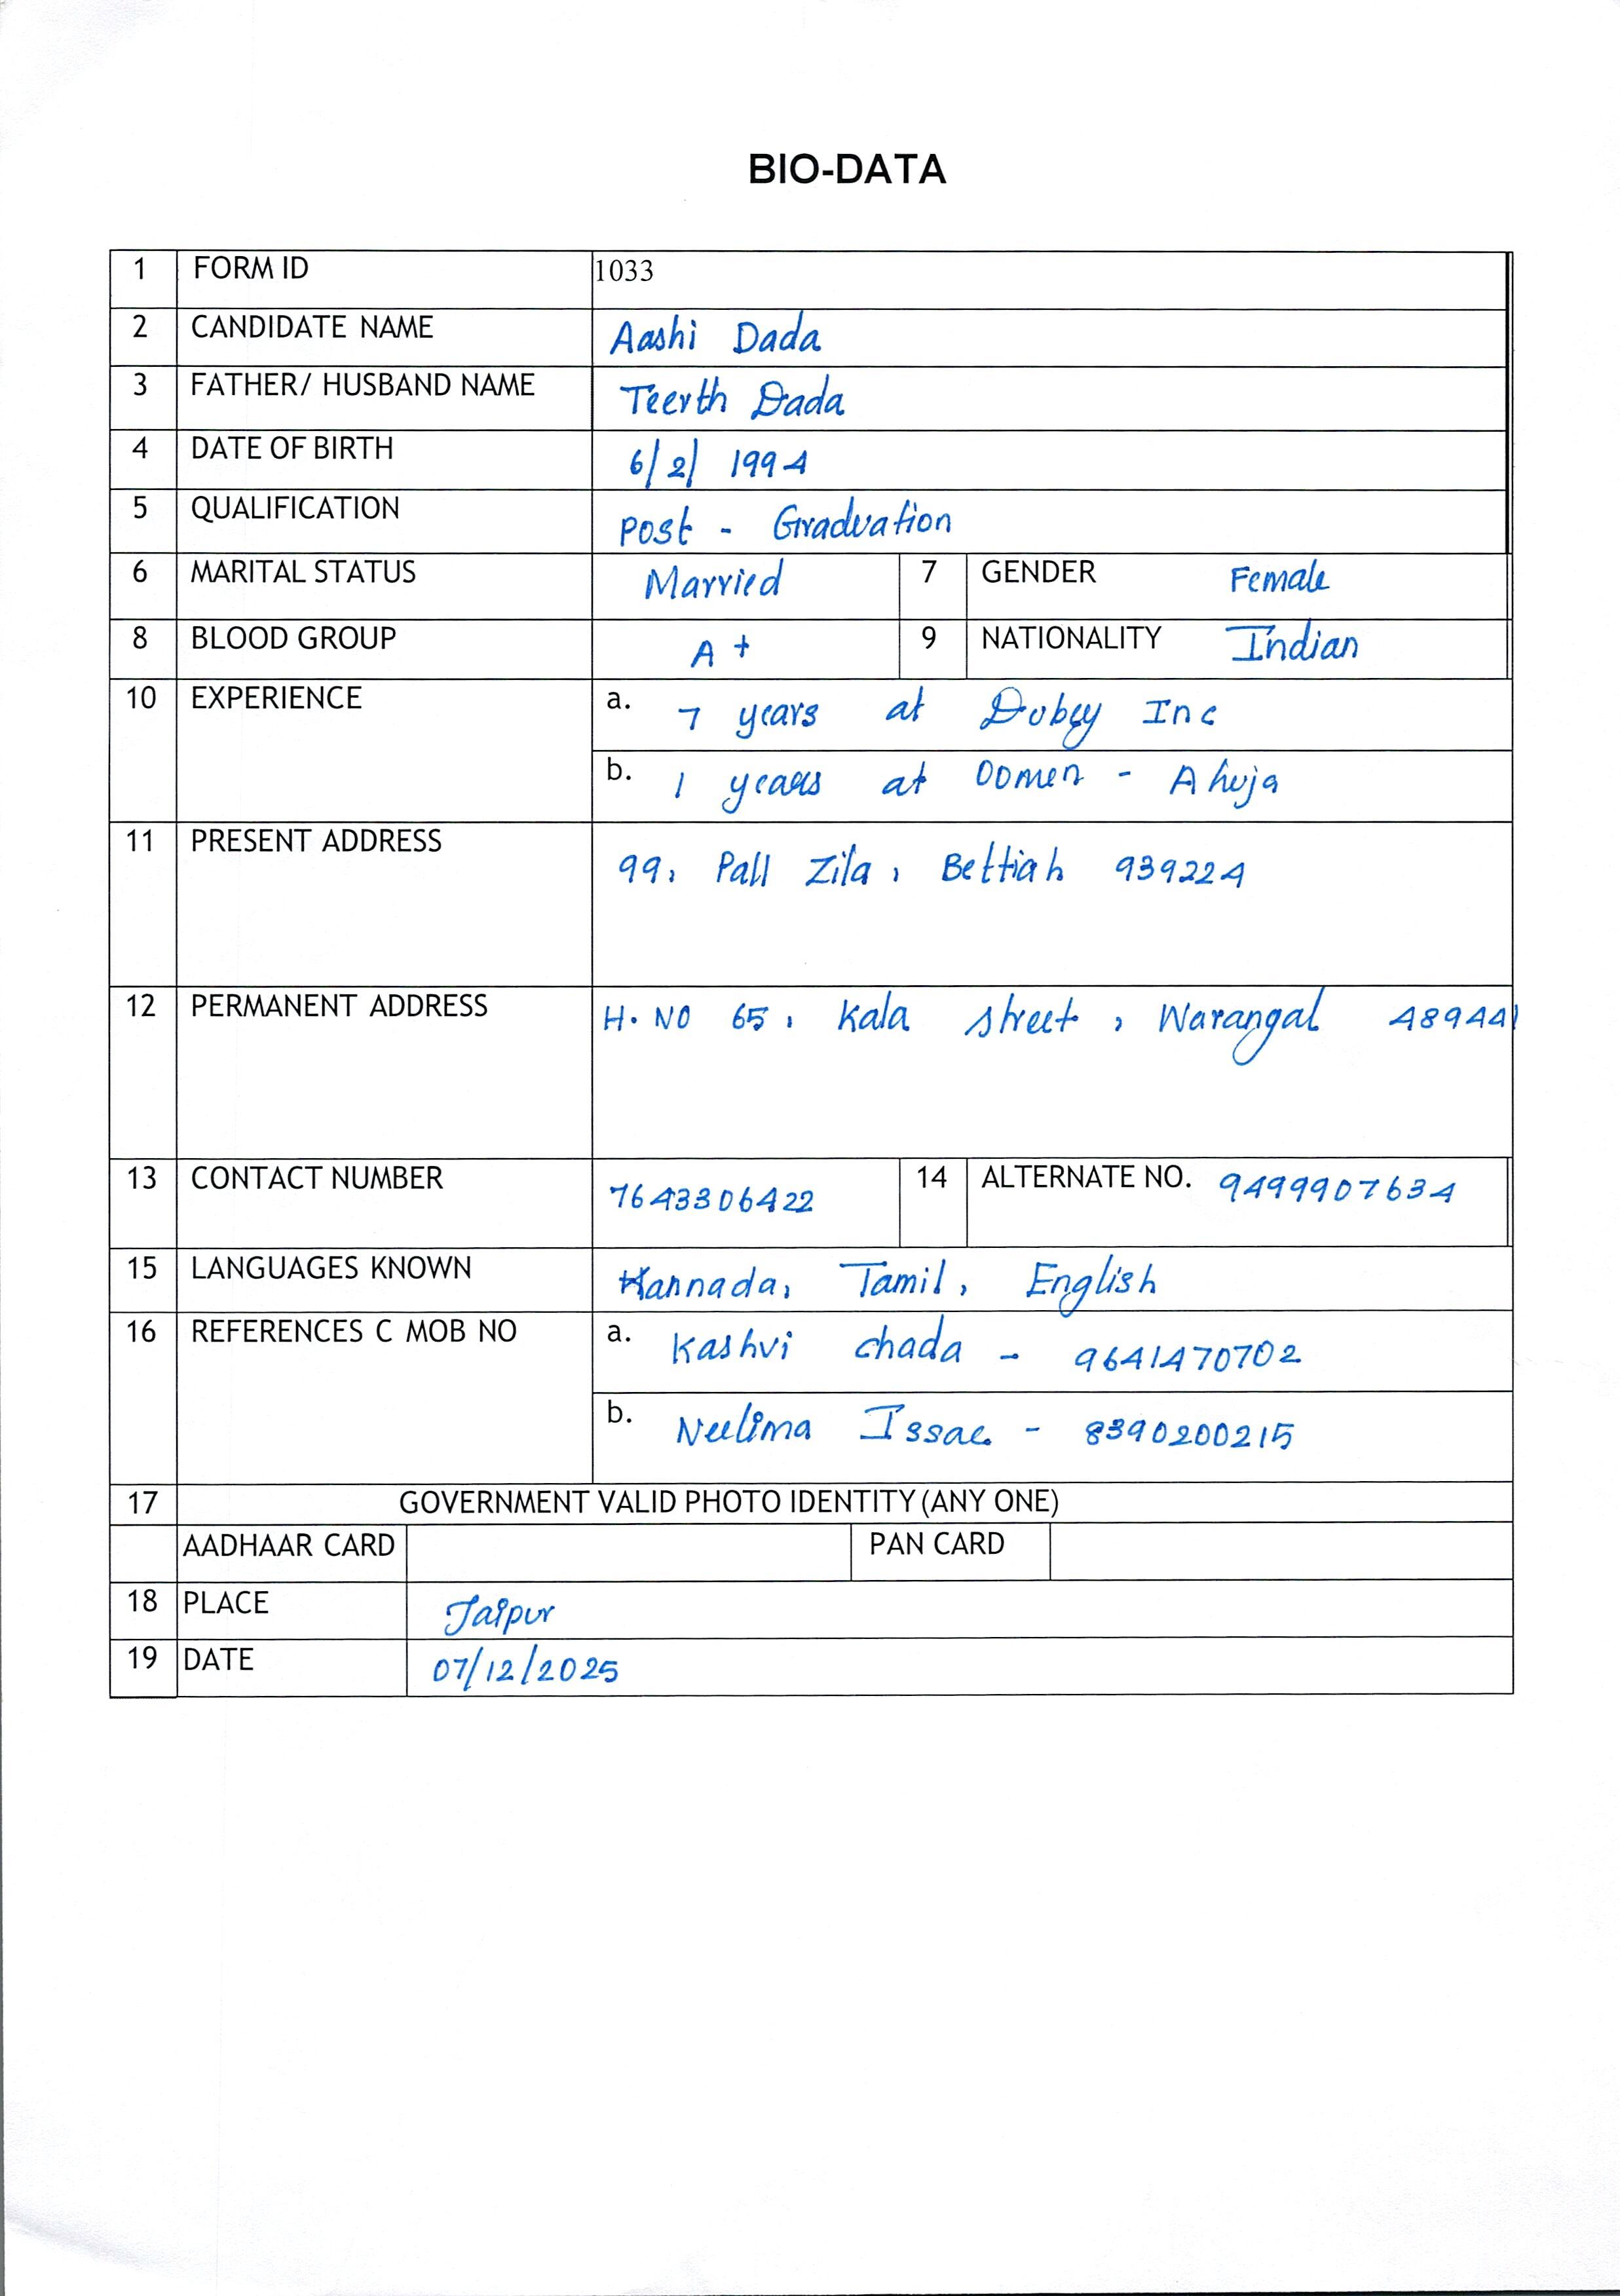 BIO-DATA
1 FORM ID 1033
2 CANDIDATE NAME Aashi Dada
3 FATHER/ HUSBAND NAME Teerth Dada
4 DATE OF BIRTH 6/2/ 1994
5 QUALIFICATION Post - Graduation
6 MARITAL STATUS Married 7 GENDER Female
8 BLOOD GROUP A + 9 NATIONALITY Indian
10 EXPERIENCE a. 7 years at Dubey Inc
b. 1 years at Oomen - Ahuja
11 PRESENT ADDRESS 99, Pall Zila, Bettiah 939224
12 PERMANENT ADDRESS H. NO 65, Kala street, Warangal 489441
13 CONTACT NUMBER 7643306422 14 ALTERNATE NO. 9499907634
15 LANGUAGES KNOWN Kannada, Tamil, English
16 REFERENCES C MOB NO a. Kashvi chada - 9641470702
b. Neelima Issac - 8390200215
17 GOVERNMENT VALID PHOTO IDENTITY (ANY ONE)
AADHAAR CARD PAN CARD
18 PLACE Jaipur
19 DATE 07/12/2025